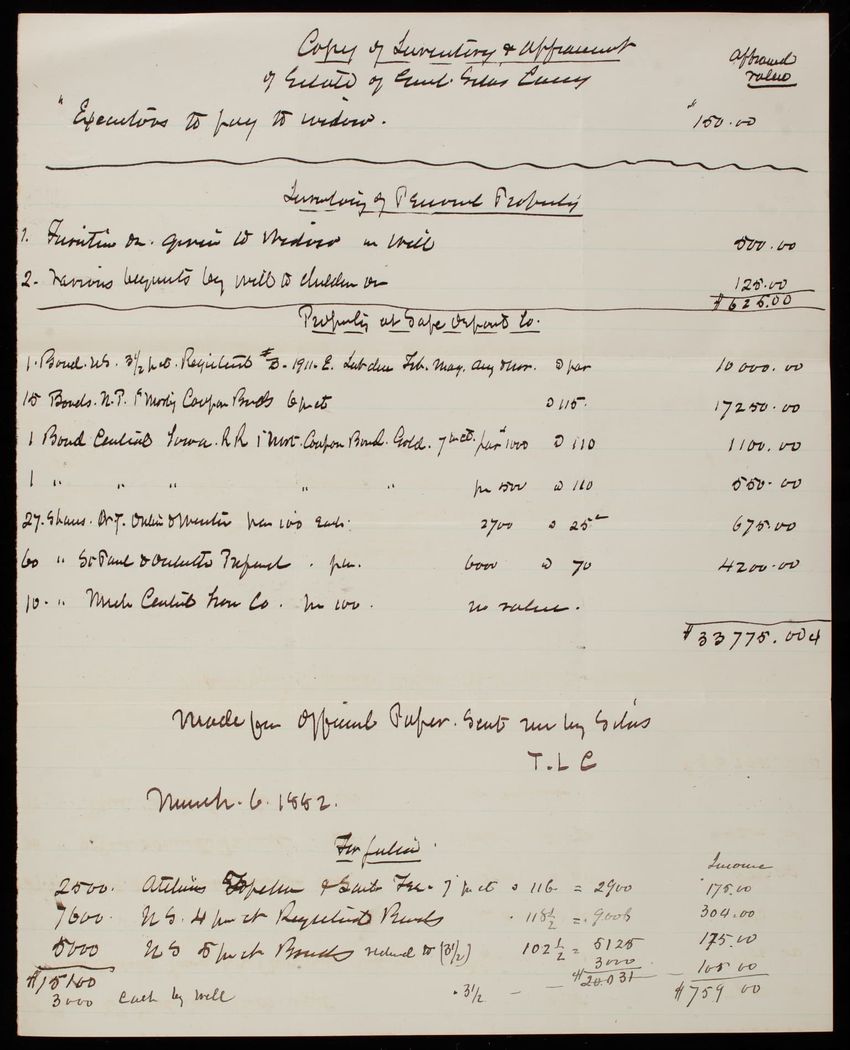 Copy of Inventory & Appraisement
of Estate of Genl. Silas Casey
Appraised value
" Executors to pay to widow. $150.00
Inventory of Personal Property
1. Furniture &c. given to widow in will 500.00
2. Various bequests by will to children &c 125.00
$625.00
Property at Safe Deposit Co.
1. Bond. U.S. 3½ p ct. Registered # 1911. E. Int due Feb. May. Aug & Nov. @ par 10000.00
15 Bonds. N.P. 1st Mortg Coupon Bonds 6 p ct @ 115. 17250.00
1 Bond Central Iowa. RR 1st Mort. Coupon Bond. Gold. 7 p ct. par $1000 @ 110 1100.00
1 " " " " " par 500 @ 110 550.00
27. Shares. par 100 each. 2700 @ 25 675.00
60 " St Paul & Duluth Preferred. par. 6000 @ 70 4200.00
10. " Mich Central Iron Co. par 100. no value.
$33775.00
Made from Official Paper. Sent me by Silas
T.L C
March. 6. 1882.
For Julia.
Income
2500. Atchison Topeka & Santa Fee. 7 p ct @ 116 = 2900 175.00
7600. U S. 4 per ct Registered Bonds 118½ = 9006 304.00
5000 U S 5 p ct Bonds reduced to (3½) 102½ = 5125 175.00
3000 105.00
$15100 $20031 $759 00
3000 Cash by will . 3½